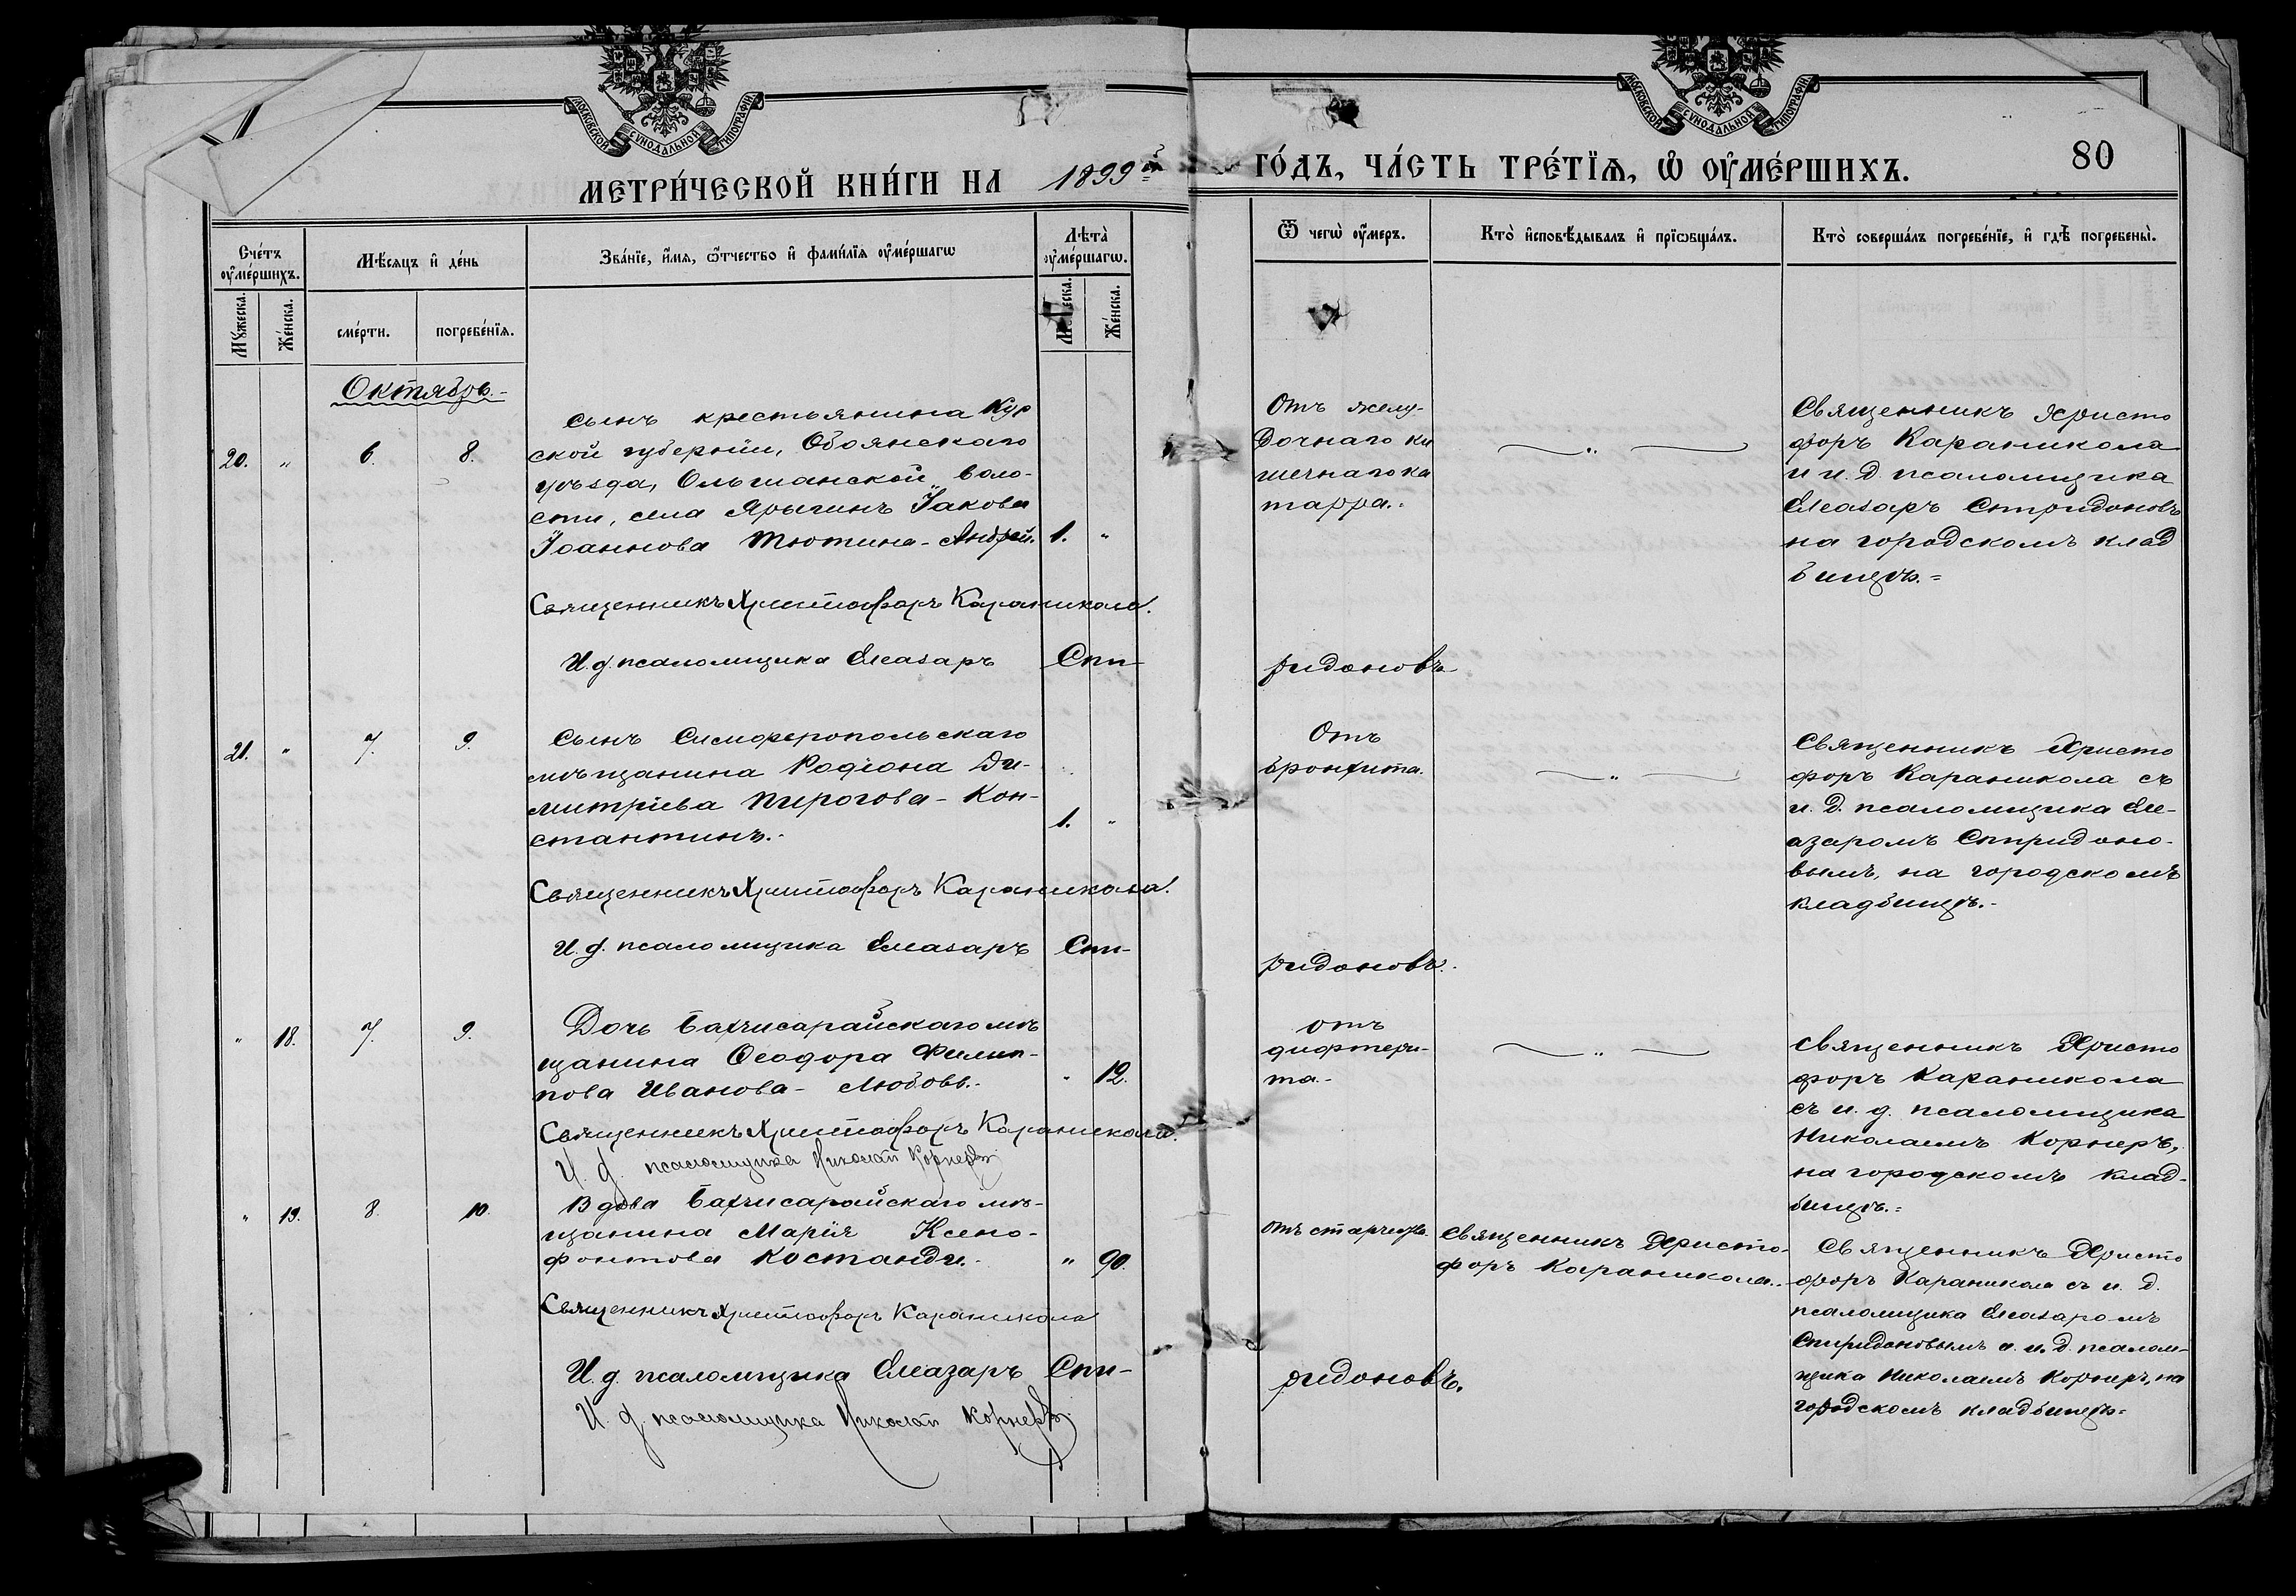 МОСКОВСКОЙ СѴНОДАЛЬНОЙ ТИПОГРАФІИ
МОСКОВСКОЙ СѴНОДАЛЬНОЙ ТИПОГРАФІИ
МЕТРИ́ЧЕСКОЙ КНИ́ГИ НА 1899й ГО́ДЪ, ЧА́СТЬ ТРЕ́ТЇѦ, Ѡ҆ ОУ҆МЕ́РШИХЪ.
80
Сче́тъ оу҆ме́ршихъ.
Мꙋ́жеска.
Же́нска.
Мѣ́сѧцъ и҆ де́нь
сме́рти.
погребе́нїѧ.
Зва́нїе, и҆́мѧ, ѻ҆́тчество и҆ фами́лїѧ оу҆ме́ршагѡ
Лѣта̀ оу҆ме́ршагѡ.
Же́нска.
Ѿ чегѡ̀ оу҆́меръ.
Кто̀ и҆сповѣ́дывалъ и҆ прїѡбща́лъ.
Кто̀ соверша́лъ погребе́нїе, и҆ гдѣ̀ погребены̀.
Октябрь.
20. " 6. 8.
Сынъ крестьянина Кур
ской губерніи, Обоянскаго
уѣзда, Ольшанской воло-
сти, села Ярыгинъ Іакова
Іоаннова Тютина - Андрей. 1. "
Отъ желу-
дочнаго ки
шечнаго ка
тарра.
Священникъ Христо
форъ Караникола
и и. д. псаломщика
Елеазаръ Спиридоновъ
на городскомъ клад
бищѣ.
Священникъ Христофоръ Караникола.
И. д. псаломщика Елеазаръ Спи-ридоновъ
21. " 7. 9.
Сынъ Симферопольскаго
мѣщанина Родіона Ди-
митріева Пирогова - Кон-
стантинъ. 1. "
Отъ
бронхита.
Священникъ Христо
форъ Караникола съ
и. д. псаломщика Еле-
азаромъ Спиридоно-
вымъ, на городскомъ
кладбищѣ.
Священникъ Христофоръ Караникола.
И. д. псаломщика Елеазаръ Спи-ридоновъ.
" 18. 7. 9.
Дочь Бахчисарайскаго мѣ
щанина Ѳеодора Филип-
пова Иванова - Любовь. " 12.
отъ
дифтери-
та.
Священникъ Христо
форъ Караникола
съ и. д. псаломщика
Николаемъ Корнеръ,
на городскомъ клад-
бищѣ.
Священникъ Христофоръ Караникола.
И. д. псаломщика Николай Корнеръ
" 19. 8. 10.
Вдова Бахчисарайскаго мѣ-
щанина Марія Ксено-
фонтова Костанди. " 90.
отъ старчества.
Священникъ Христо-
форъ Караникола.
Священникъ Христо
форъ Караникола съ и. д.
псаломщика Елеазаромъ
Спиридоновымъ и и. д. псалом-
щика Николаемъ Корнеръ, на
городскомъ кладбищѣ
Священникъ Христофоръ Караникола
И. д. псаломщика Елеазаръ Спи-ридоновъ.
И. д. псаломщика Николай Корнеръ